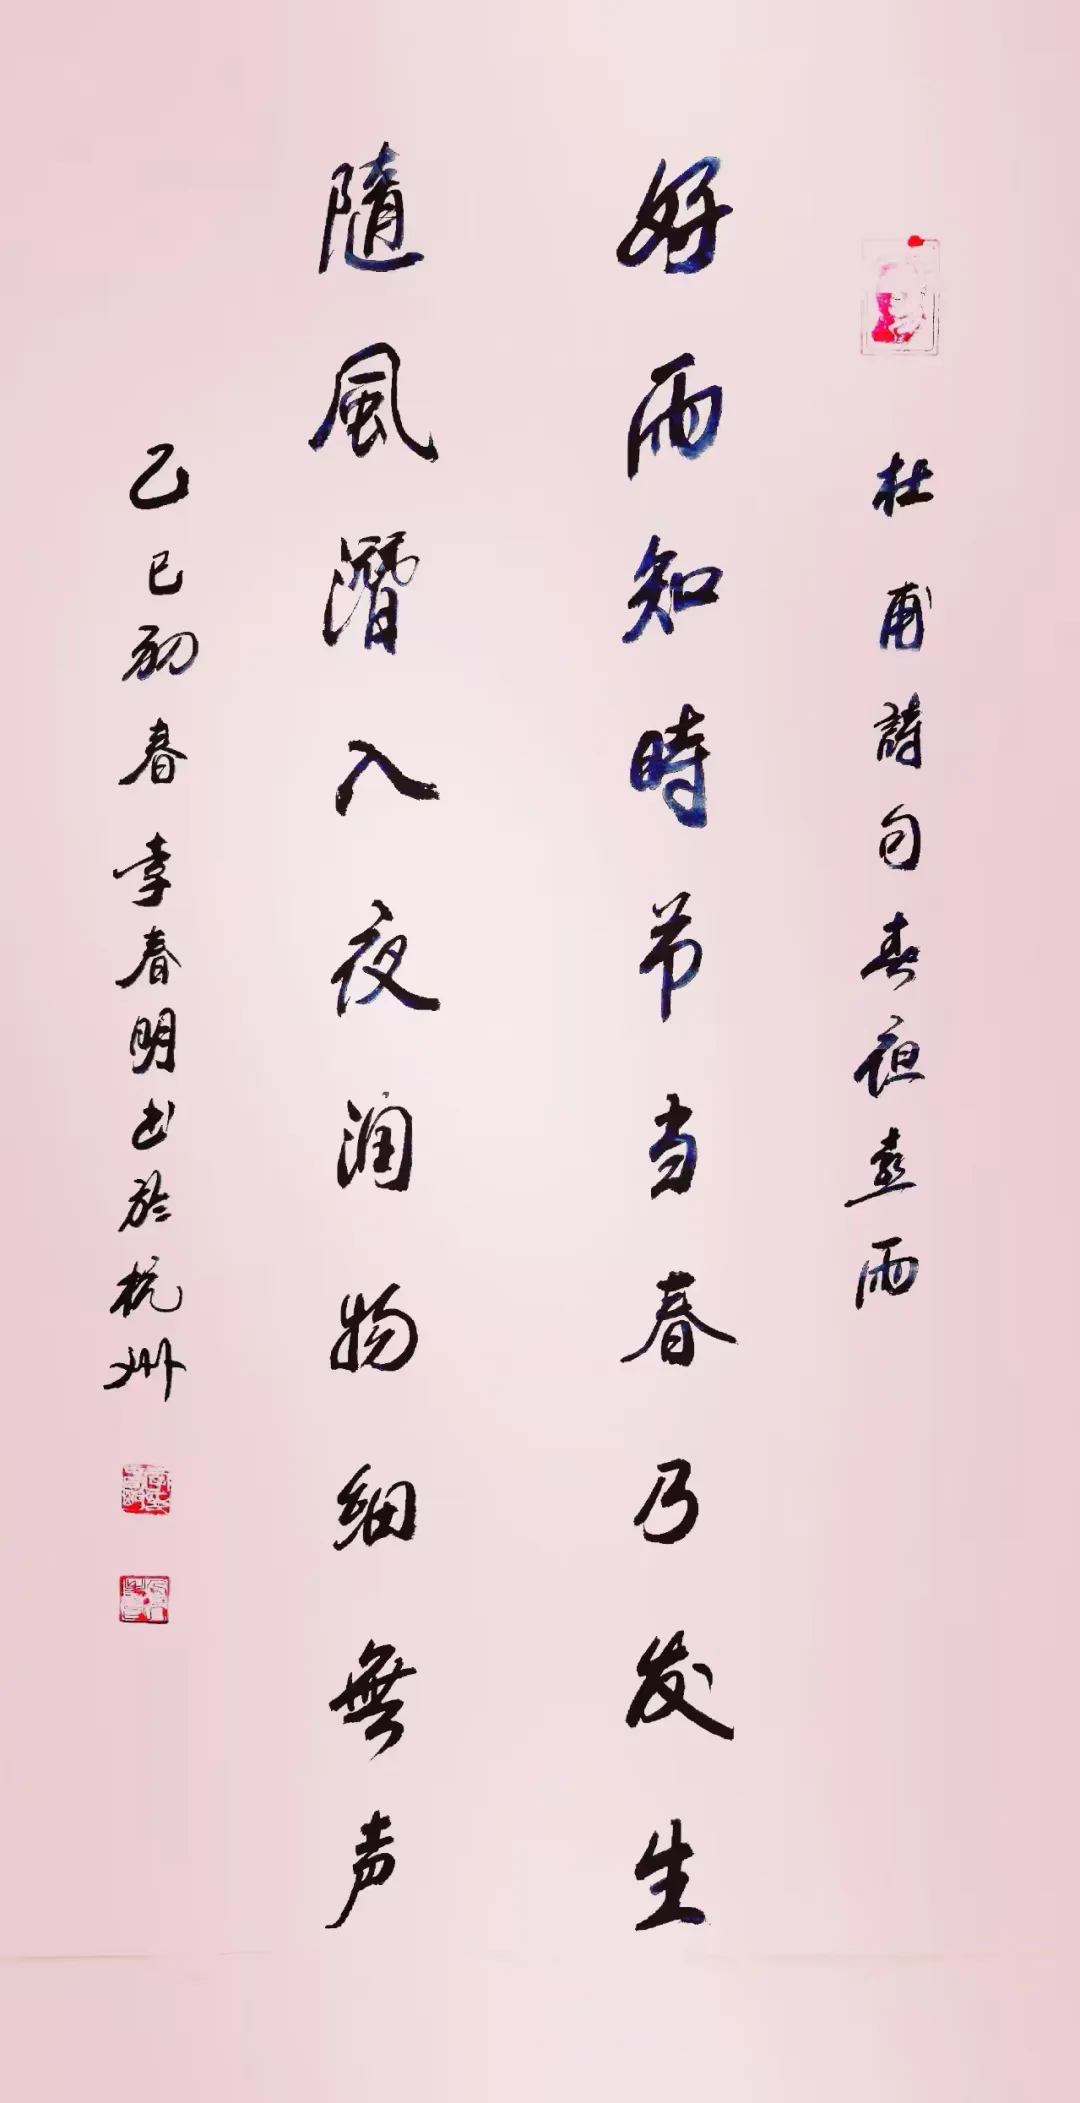 杜甫詩句春夜喜雨
好雨知時节当春乃发生
隨風潛入夜润物细無声
乙巳初春李春明书於杭州